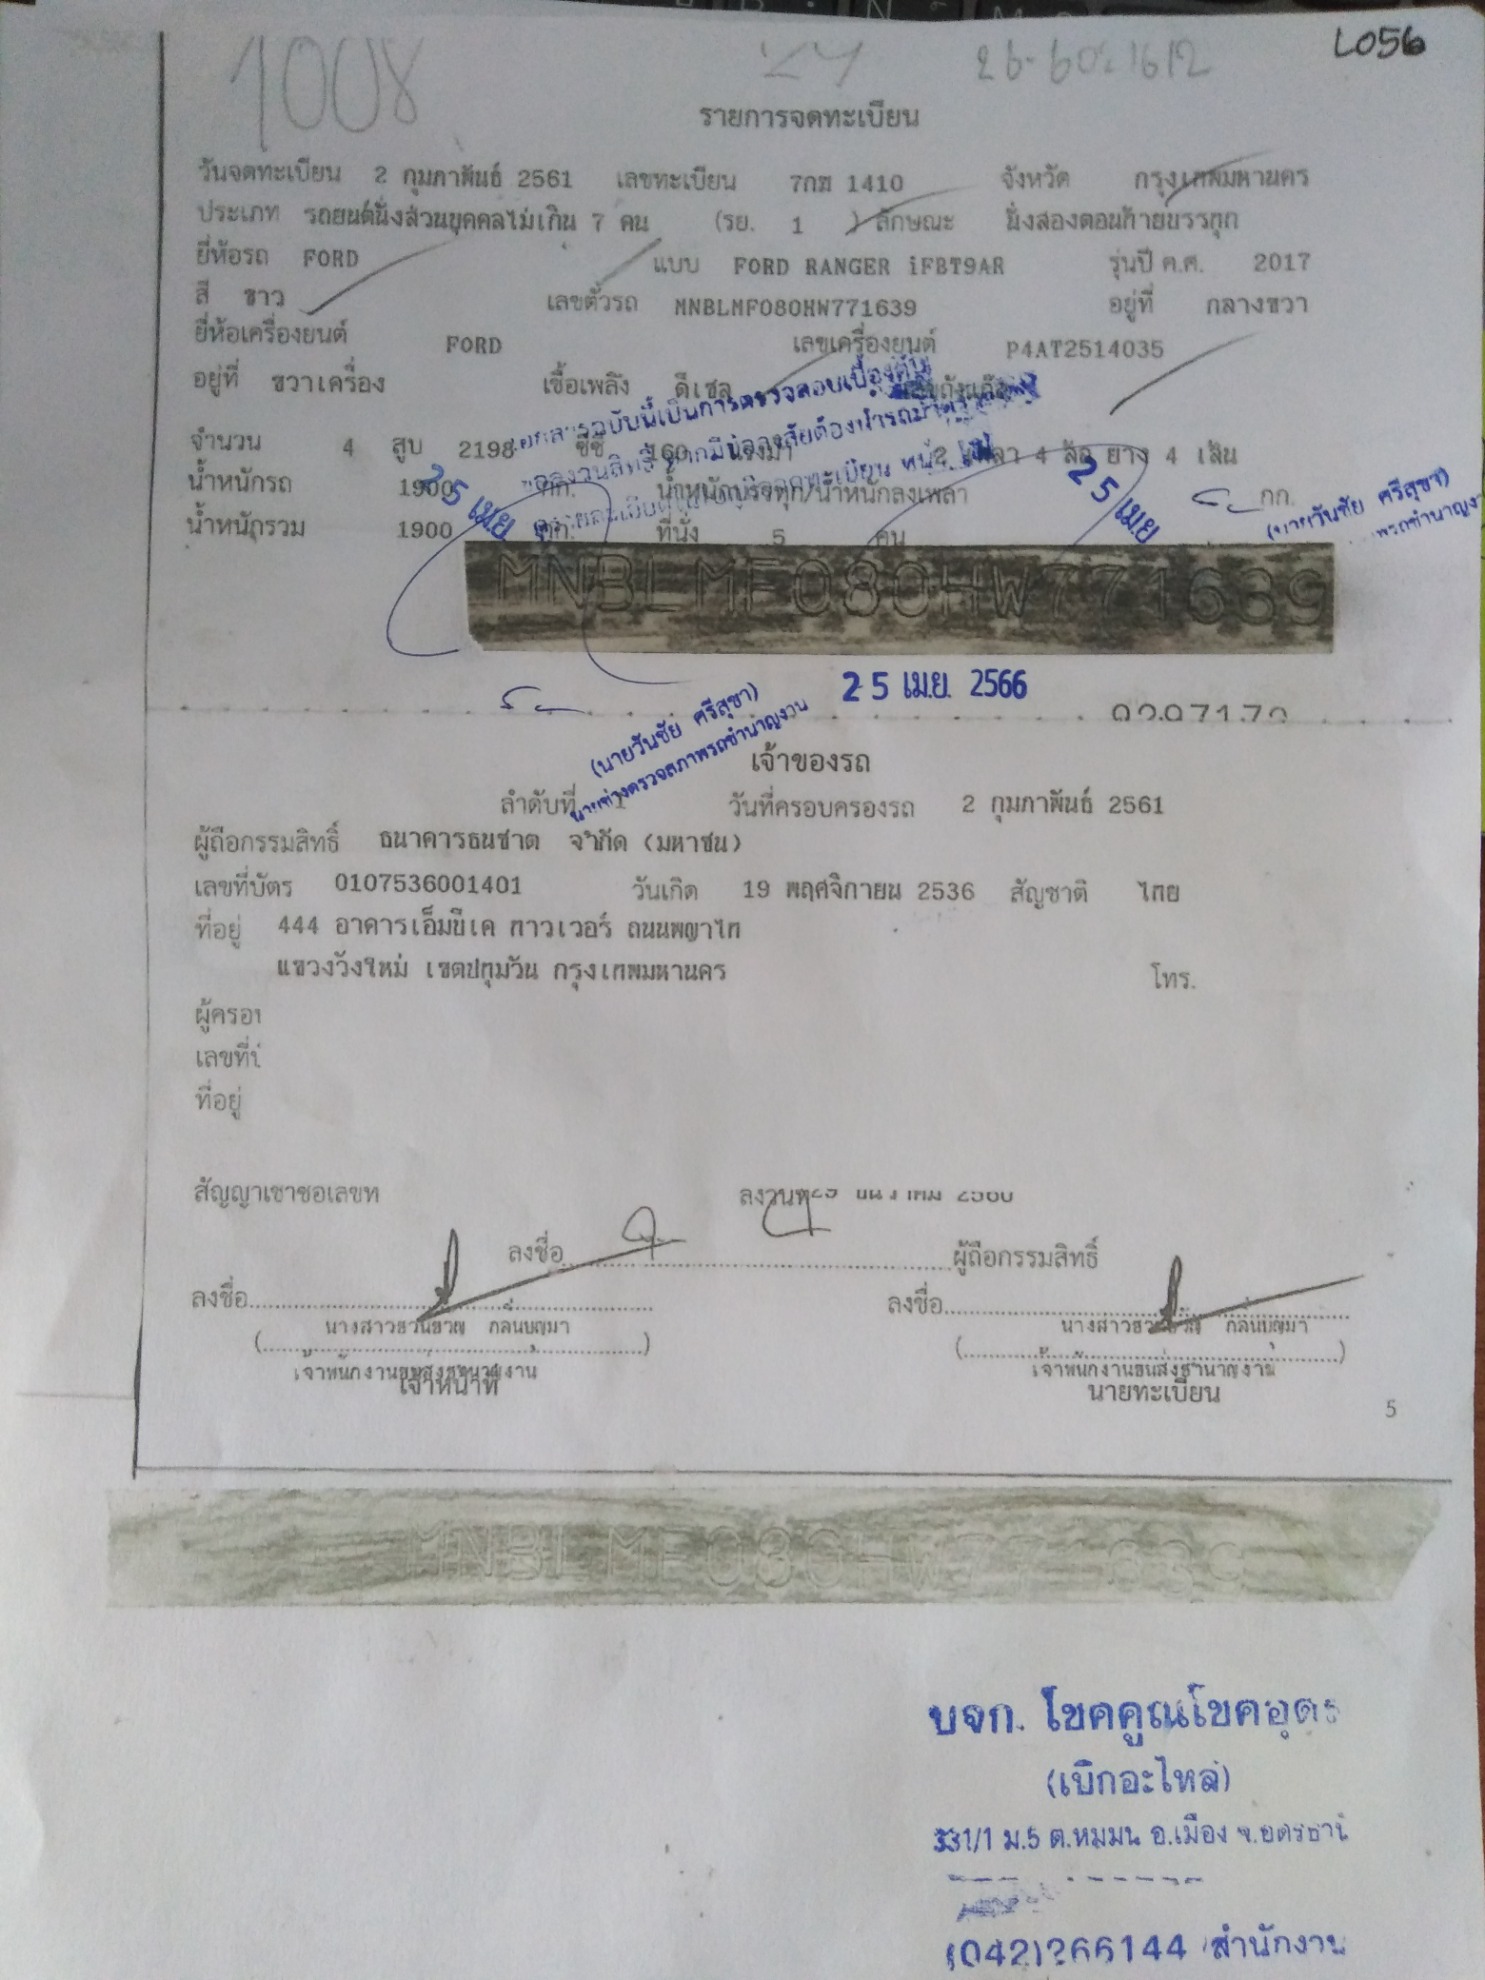 1008 26-60-1612 L056
รายการจดทะเบียน
วันจดทะเบียน 2 กุมภาพันธ์ 2561 เลขทะเบียน 7กท 1410 จังหวัด กรุงเทพมหานคร
ประเภท รถยนต์นั่งส่วนบุคคลไม่เกิน 7 คน (รย. 1 ) ลักษณะ นั่งสองตอนท้ายบรรทุก
ยี่ห้อรถ FORD แบบ FORD RANGER iFBT9AR รุ่นปี ค.ศ. 2017
สี ขาว เลขตัวรถ MNBLMF080HW771639 อยู่ที่ กลางขวา
ยี่ห้อเครื่องยนต์ FORD เลขเครื่องยนต์ P4AT2514035
อยู่ที่ ขวาเครื่อง เชื้อเพลิง ดีเซล เลขถังแก๊ส
เอกสารฉบับนี้เป็นการตรวจสอบเบื้องต้น
จำนวน 4 สูบ 2198 ซีซี 160 แรงม้า 2 เพลา 4 ล้อ ยาง 4 เส้น
น้ำหนักรถ 1900 กก. น้ำหนักบรรทุก/น้ำหนักลงเพลา กก.
น้ำหนักรวม 1900 กก. ที่นั่ง 5 คน
25 เม.ย. 25 เม.ย.
(นายวันชัย ศรีสุชา)
MNBLMF080HW771639
25 เม.ย. 2566
(นายวันชัย ศรีสุชา)
นายช่างตรวจสภาพรถชำนาญงาน
เจ้าของรถ
ลำดับที่ 1 วันที่ครอบครองรถ 2 กุมภาพันธ์ 2561
ผู้ถือกรรมสิทธิ์ ธนาคารธนชาต จำกัด (มหาชน)
เลขที่บัตร 0107536001401 วันเกิด 19 พฤศจิกายน 2536 สัญชาติ ไทย
ที่อยู่ 444 อาคารเอ็มบีเค ทาวเวอร์ ถนนพญาไท
แขวงวังใหม่ เขตปทุมวัน กรุงเทพมหานคร โทร.
ที่อยู่
สัญญาเช่าซื้อเลขที่ ลงวันที่ 29 ธันวาคม 2560
ลงชื่อ ผู้ถือกรรมสิทธิ์
ลงชื่อ ลงชื่อ
เจ้าพนักงานขนส่งชำนาญงาน เจ้าพนักงานขนส่งชำนาญงาน
เจ้าหน้าที่ นายทะเบียน
5
MNBLMF080HW771639
บจก. โชคคูณโชคอุดร
(เบิกอะไหล่)
331/1 ม.5 ต.หมูม่น อ.เมือง จ.อุดรธานี
(042)266144 สำนักงาน